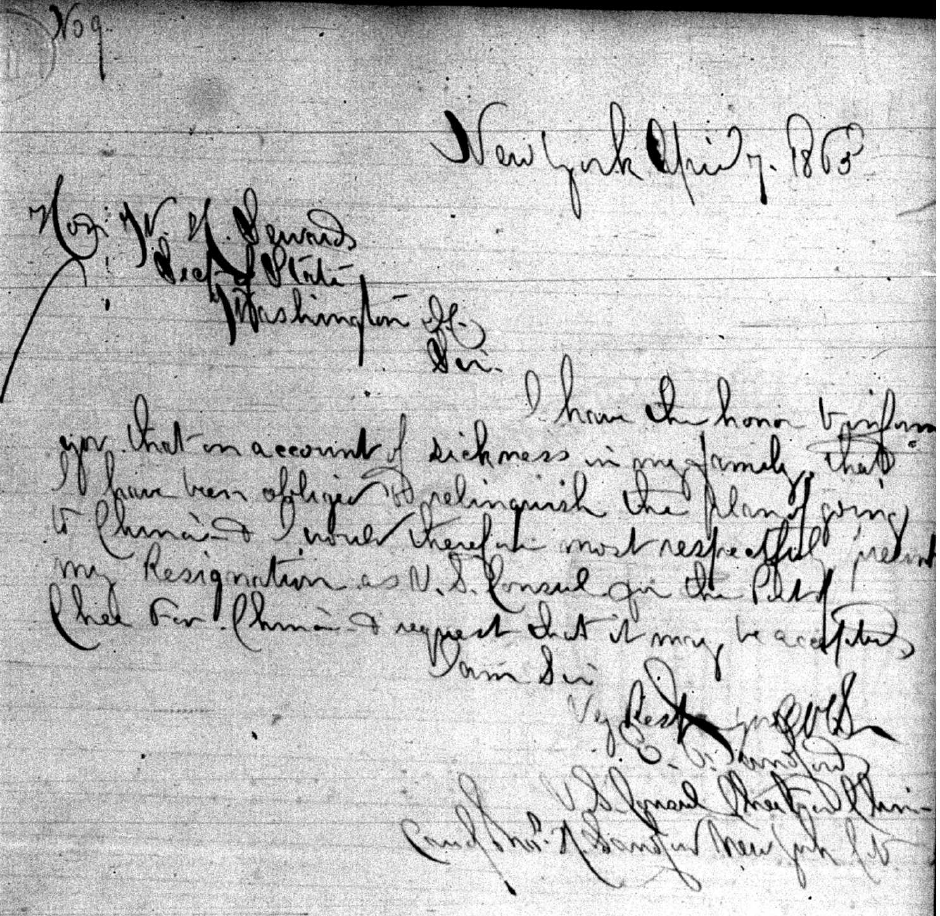 No 9
New York April 7. 1863
Hon: W. H. Seward
Secy of State
Washington
Sir.
I have the honor to inform
you that on account of sickness in my family, that
I have been obliged to relinquish the plan of going
to China & I would therefore most respectfully present
my Resignation as U.S. Consul for the Port of
Chee Foo. China & request that it may be accepted
I am Sir
Vy Resp yr
E. Sandford
U.S Consul Cheefoo China
New York